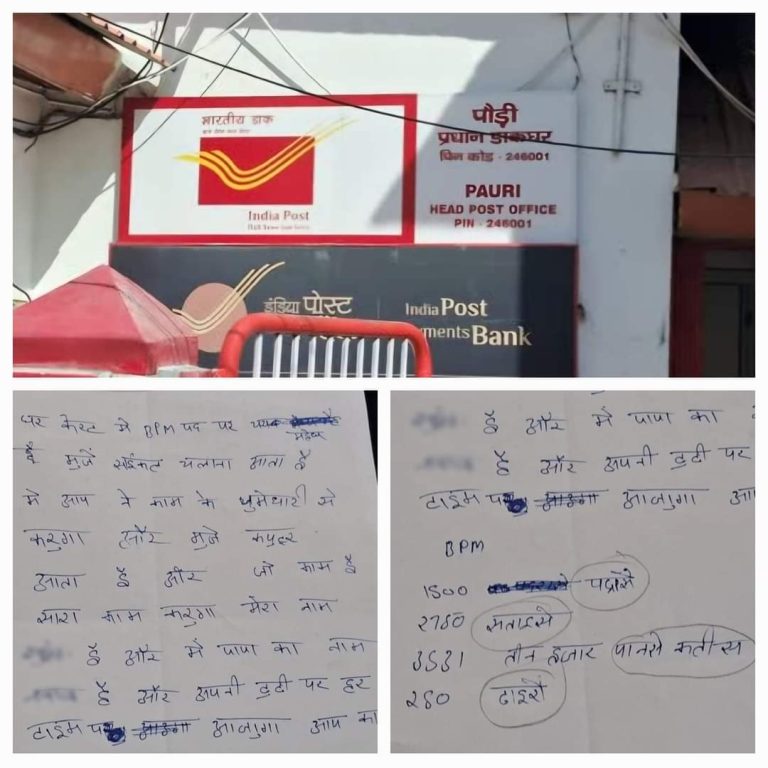 भारतीय डाक
India Post
पौड़ी
प्रधान डाकघर
पिन कोड - 246001
PAURI
HEAD POST OFFICE
PIN - 246001
इंडिया पोस्ट
India Post
ments Bank
पर केस्ट मे BPM पद पर
है मुजें साईकल चलाना आता है
मे आप ने काम के धुमेधारी से
करुगा और मुजे कपुटर
आता है और जो काम है
सारा काम करुगा मेरा नाम
है और मे पापा का नाम
है और अपनी डुटी पर हर
टाइम पर आजुगा आप का
है और मे पापा का
है और अपनी डुटी पर
टाइम पर आजुगा आप
BPM
1500 पद्रासे
2750 सताइसे
3531 तीन हजार पानसे कतीस्य
250 ढाइसे